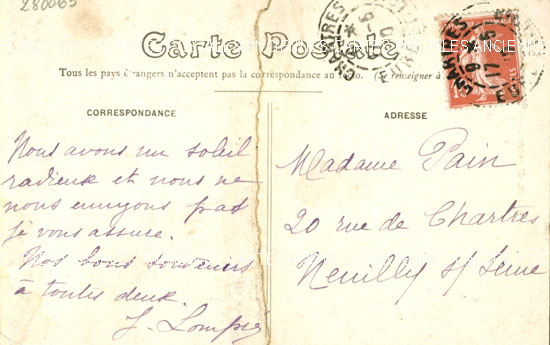 280065
Carte Postale
Tous les pays étrangers n'acceptent pas la correspondance au recto. (Se renseigner à
CORRESPONDANCE
Nous avons un soleil
radieux et nous ne
nous ennuyons pas
je vous assure.
Nos bons souvenirs
à toutes deux.
ADRESSE
Madame Pain
20 rue de Chartres
Neuilly s/ Seine
CHARTRES